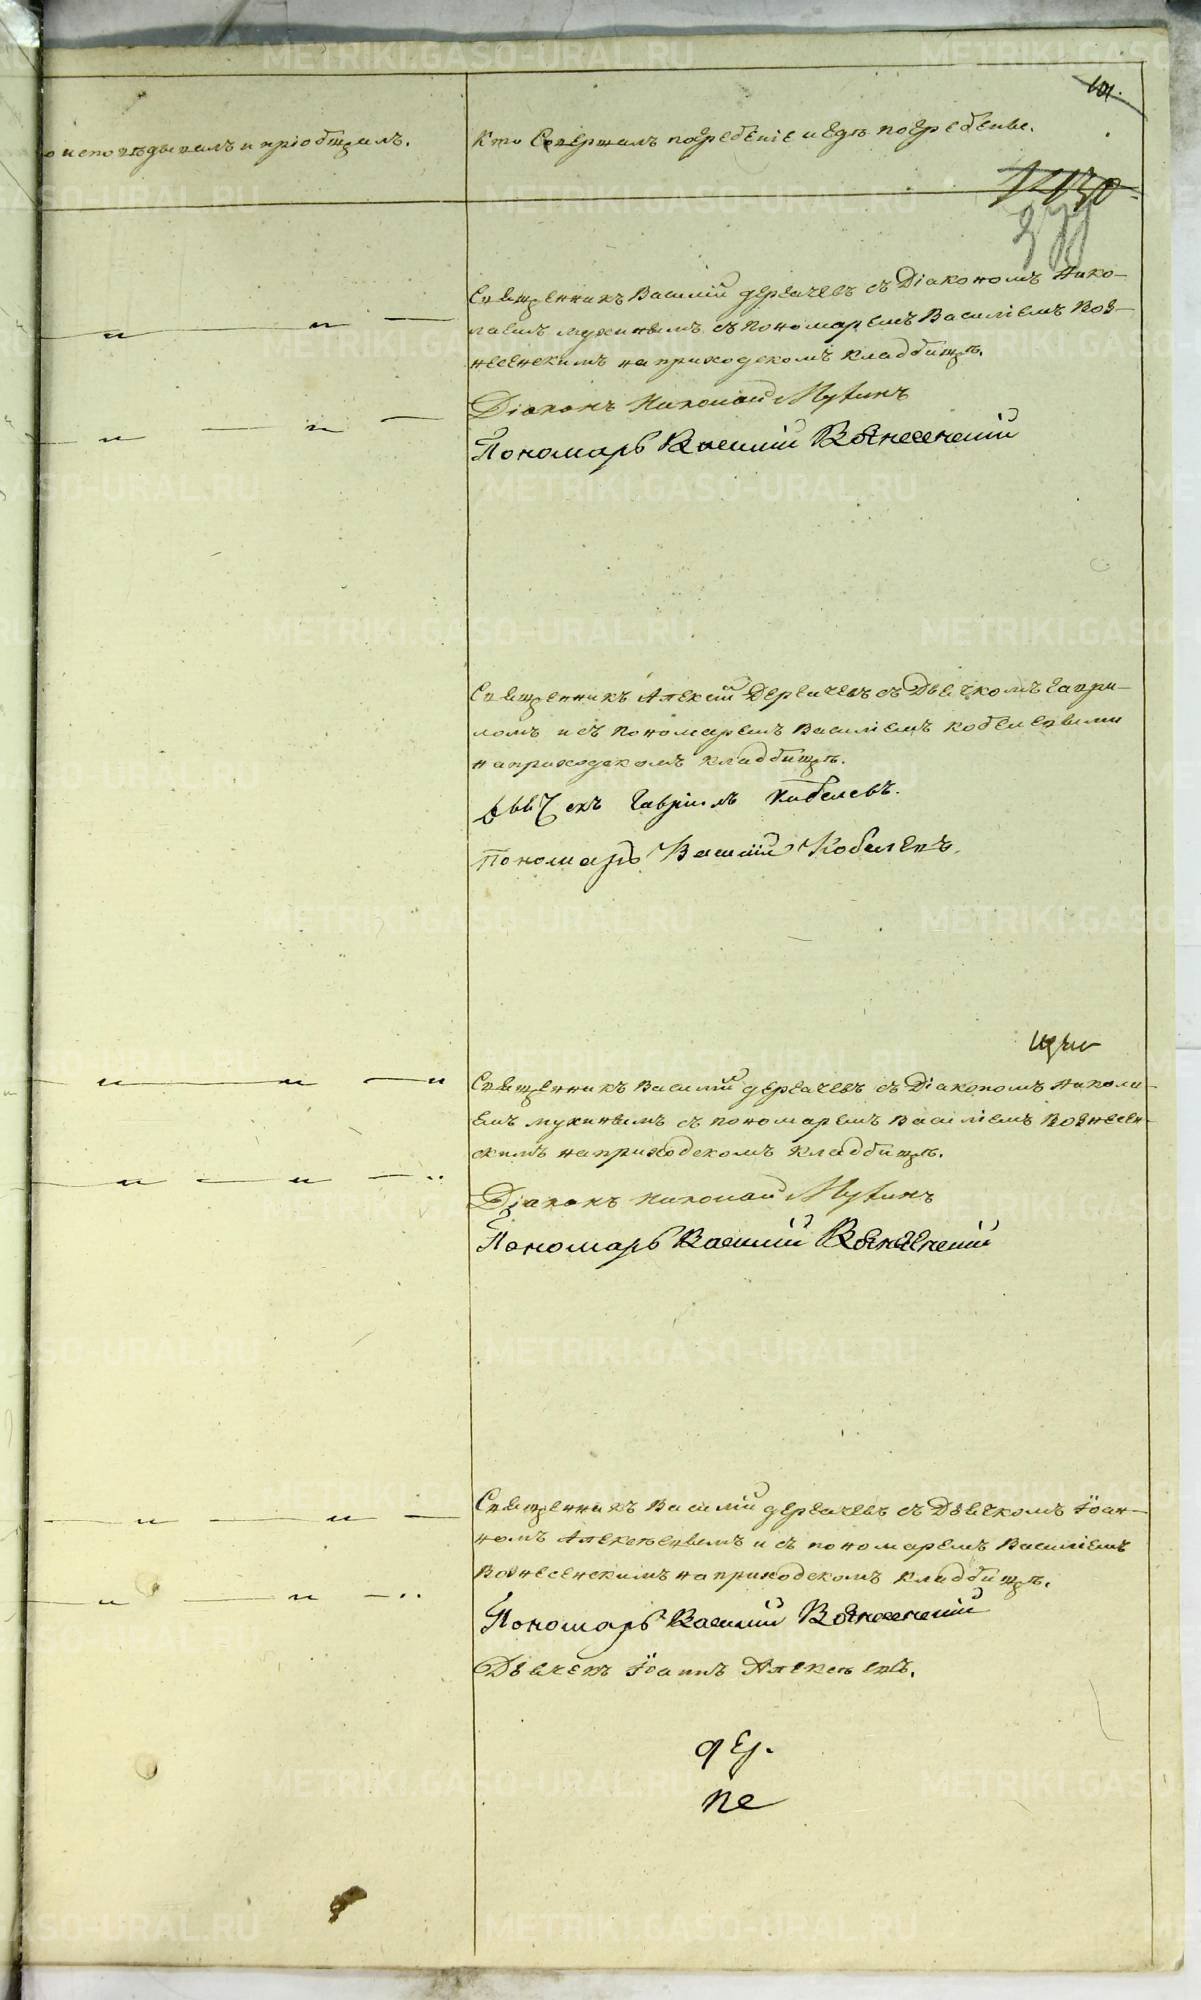 о исповѣдывалъ и пріобщалъ.
Кто Совершалъ погребеніе и гдѣ погребены.
Священникъ Василій Дерлачевъ съ Діакономъ Нико-
лаемъ Мухинымъ, съ Пономаремъ Василіемъ Воз-
несенскимъ на приходскомъ кладбищѣ.
Діаконъ Николай Мухинъ
Пономарь Василій Вознесенскій
Священникъ Алексій съ Дьячкомъ Гаври-
ломъ и съ Пономаремъ Василіемъ Кобелевыми
на приходскомъ кладбищѣ.
Дьячекъ Гавріилъ Кобелевъ.
Пономарь Василій Кобелевъ.
Священникъ Василій съ Діакономъ Никола-
емъ Мухинымъ съ пономаремъ Василіемъ Вознесен-
скимъ на приходскомъ кладбищѣ.
Діаконъ Николай Мухинъ
Пономарь Василій Вознесенскій
Священникъ Василій съ Дьячкомъ Іоан-
номъ Алексѣевымъ и съ пономаремъ Василіемъ
Вознесенскимъ на приходскомъ кладбищѣ.
Пономарь Василій Вознесенскій
Дьячекъ Іоаннъ Алексѣевъ.
METRIKI.GASO-URAL.RU